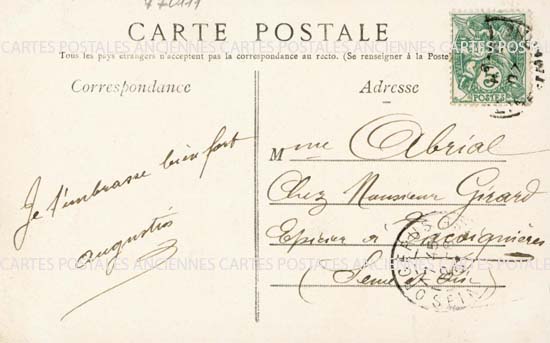 CARTE POSTALE
CARTES POSTALES ANCIENNES CARTES POSTALES ANCIENNES CARTES POSTALES
Tous les pays étrangers n'acceptent pas la correspondance au recto. (Se renseigner à la Poste)
Correspondance
Je t'embrasse bien fort
augustin
Adresse
Mme Abrial
Chez Monsieur Girard
Epicier a
Seine Oise
5
POSTES
CARTES POSTALES ANCIENNES CARTES POSTALES ANCIENNES CARTES POSTALES